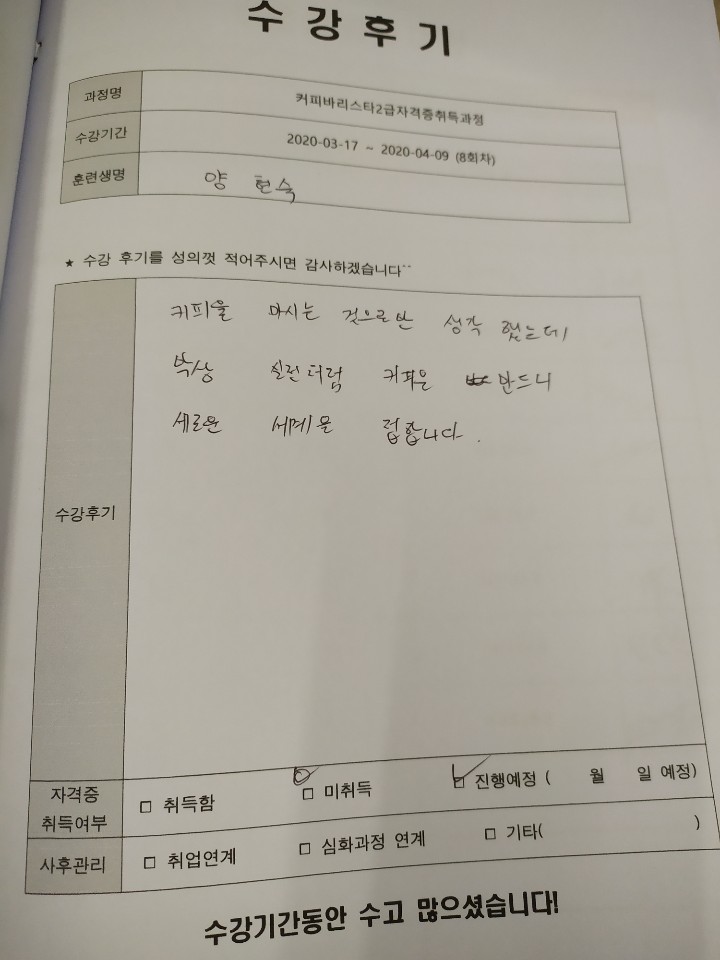 수강후기
과정명 커피바리스타2급자격증취득과정
수강기간 2020-03-17 ~ 2020-04-09 (8회차)
훈련생명 양 현숙
★ 수강 후기를 성의껏 적어주시면 감사하겠습니다^^
커피을 마시는 것으로만 생각 했는데
막상 실런더럼 커피은 만드니
세로운 세계를 접합니다.
수강후기
자격증 취득여부 □ 취득함 □ 미취득 ☑ 진행예정 ( 월 일 예정)
사후관리 □ 취업연계 □ 심화과정 연계 □ 기타( )
수강기간동안 수고 많으셨습니다!